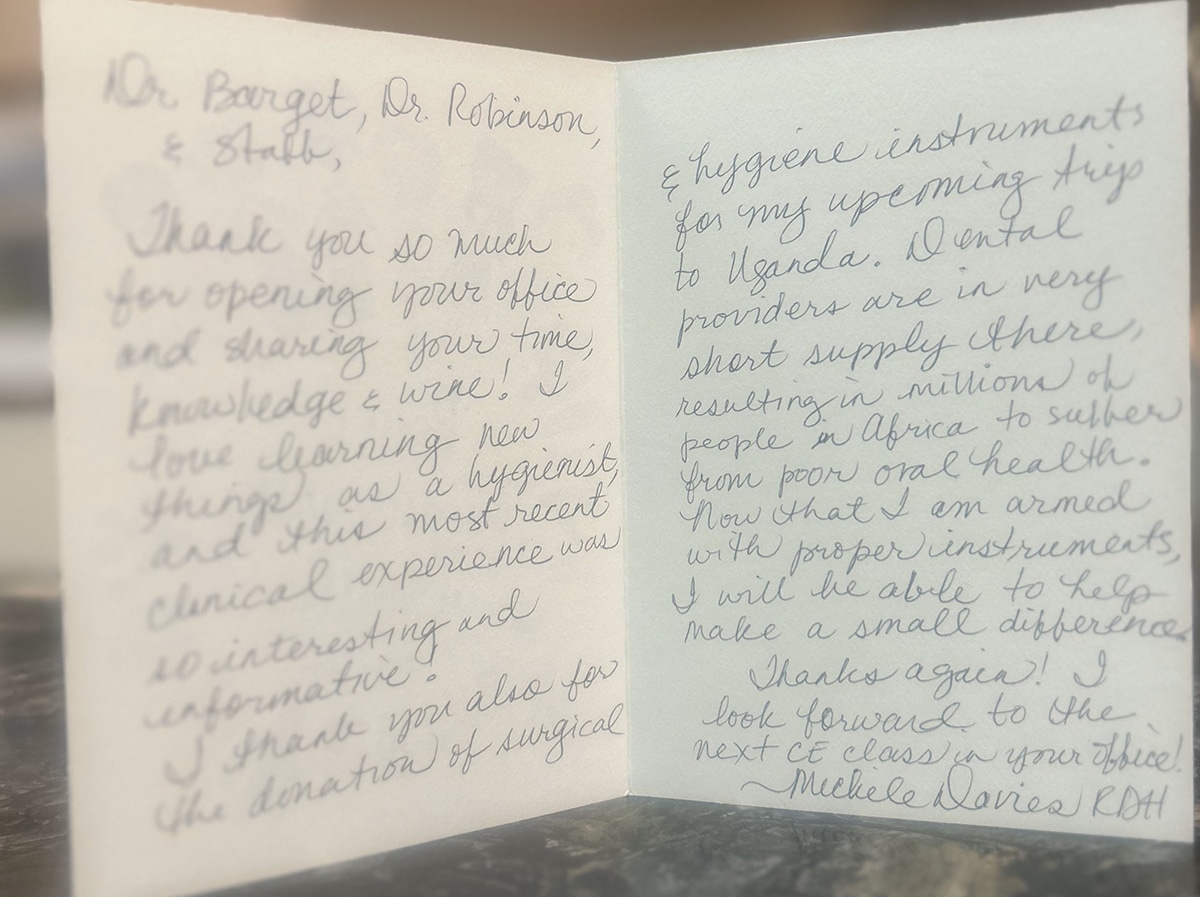 Dr. Barget, Dr. Robinson,
& Staff,
Thank you so much
for opening your office
and sharing your time,
knowledge & wine! I
love learning new
things as a hygienist,
and this most recent
clinical experience was
so interesting and
informative!
I thank you also for
the donation of surgical
& hygiene instruments
for my upcoming trips
to Uganda. Dental
providers are in very
short supply there,
resulting in millions of
people in Africa to suffer
from poor oral health.
Now that I am armed
with proper instruments,
I will be able to help
make a small difference.
Thanks again! I
look forward to the
next CE class in your office!
~Michele Davies RDH